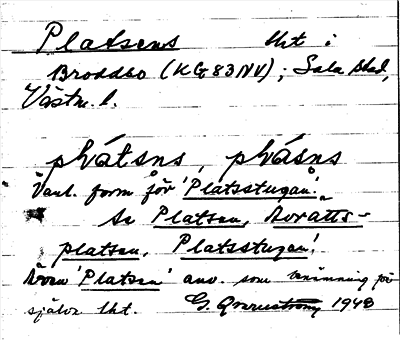 Platsens lht i
Broddbo (KG 83 NV); Sala stad,
Västm. l.
plátsns, plásns
Vanl. form för 'Platsstugan'.
Se Platsen,
platsen, Platsstugan!
Även 'Platsen' anv. som benämning på
själva lht. G. 1948